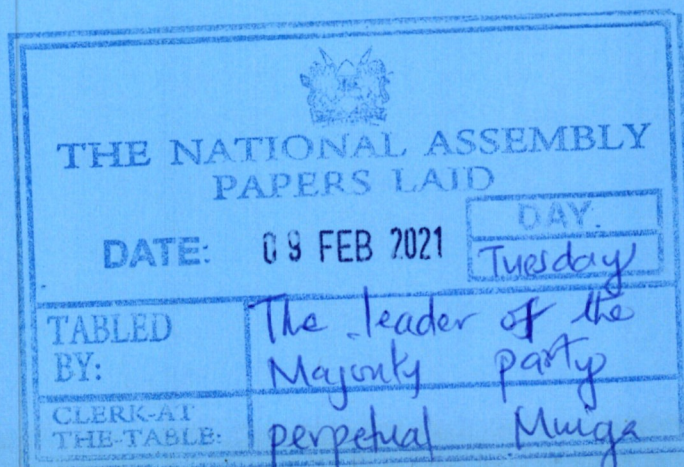 THE NATIONAL ASSEMBLY
PAPERS LAID
DATE: 09 FEB 2021
DAY.
Tuesday
TABLED BY: The leader of the
Majority party
CLERK-AT
THE-TABLE: perpetual Muiga